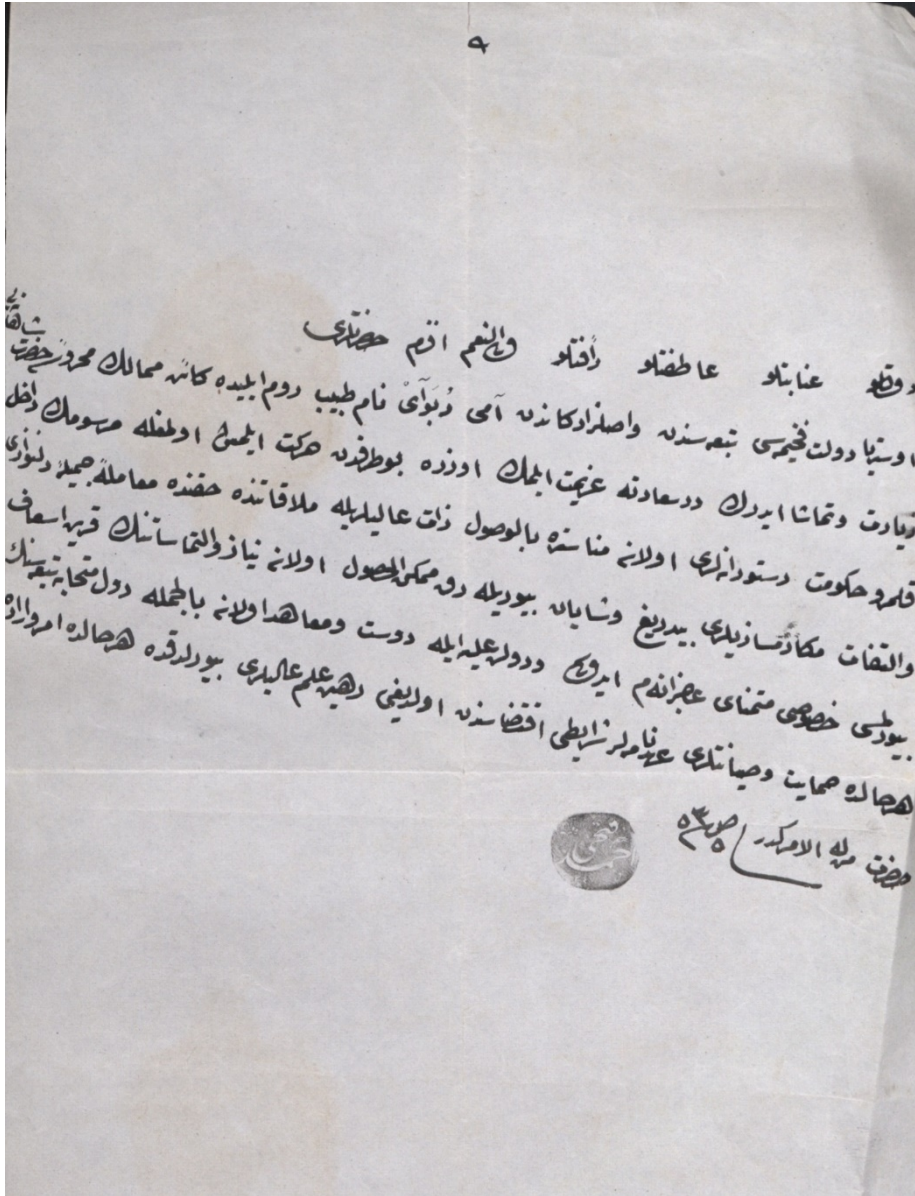 دولتلو عنايتلو عاطفتلو رأفتلو ولي النعم افندم حضرتلرى
اوستريا دولت فخيمه سى تبعه سندن واصلزادكاندن آمى دُبوآىْ نام طبيب روم ايليده كائن ممالك محروسۀ حضرت شاهانه يى
زيارت وتماشا ايدرك درسعادته عزيمت ايلمك اوزره بوطرفدن حركت ايلمش اولمغله مرسومك داخل
قلمرو حكومت دستورانه لرى اولان مناستره بالوصول ذات عاليلريله ملاقاتنده حقنده معاملۀ جميلۀ دلنوازى
والتفات مكارمسازيلرى بيدريغ وشايان بيوريله رق ممكن الحصول اولان نياز والتماساتنك قرين اسعاف
بيورلمسى خصوصى متمناى عاجزانه م ايدوكى ودولت عليه ايله دوست ومعاهد اولان بالجمله دول متحابه تبعه سنك
هر حالده حمايت وصيانتلرى عهدنامه لر شرايطى اقتضاسندن اولديغى رهين علم عاليلرى بيورلدقده هر حالده امر واراده
حضرت من له الامركدر